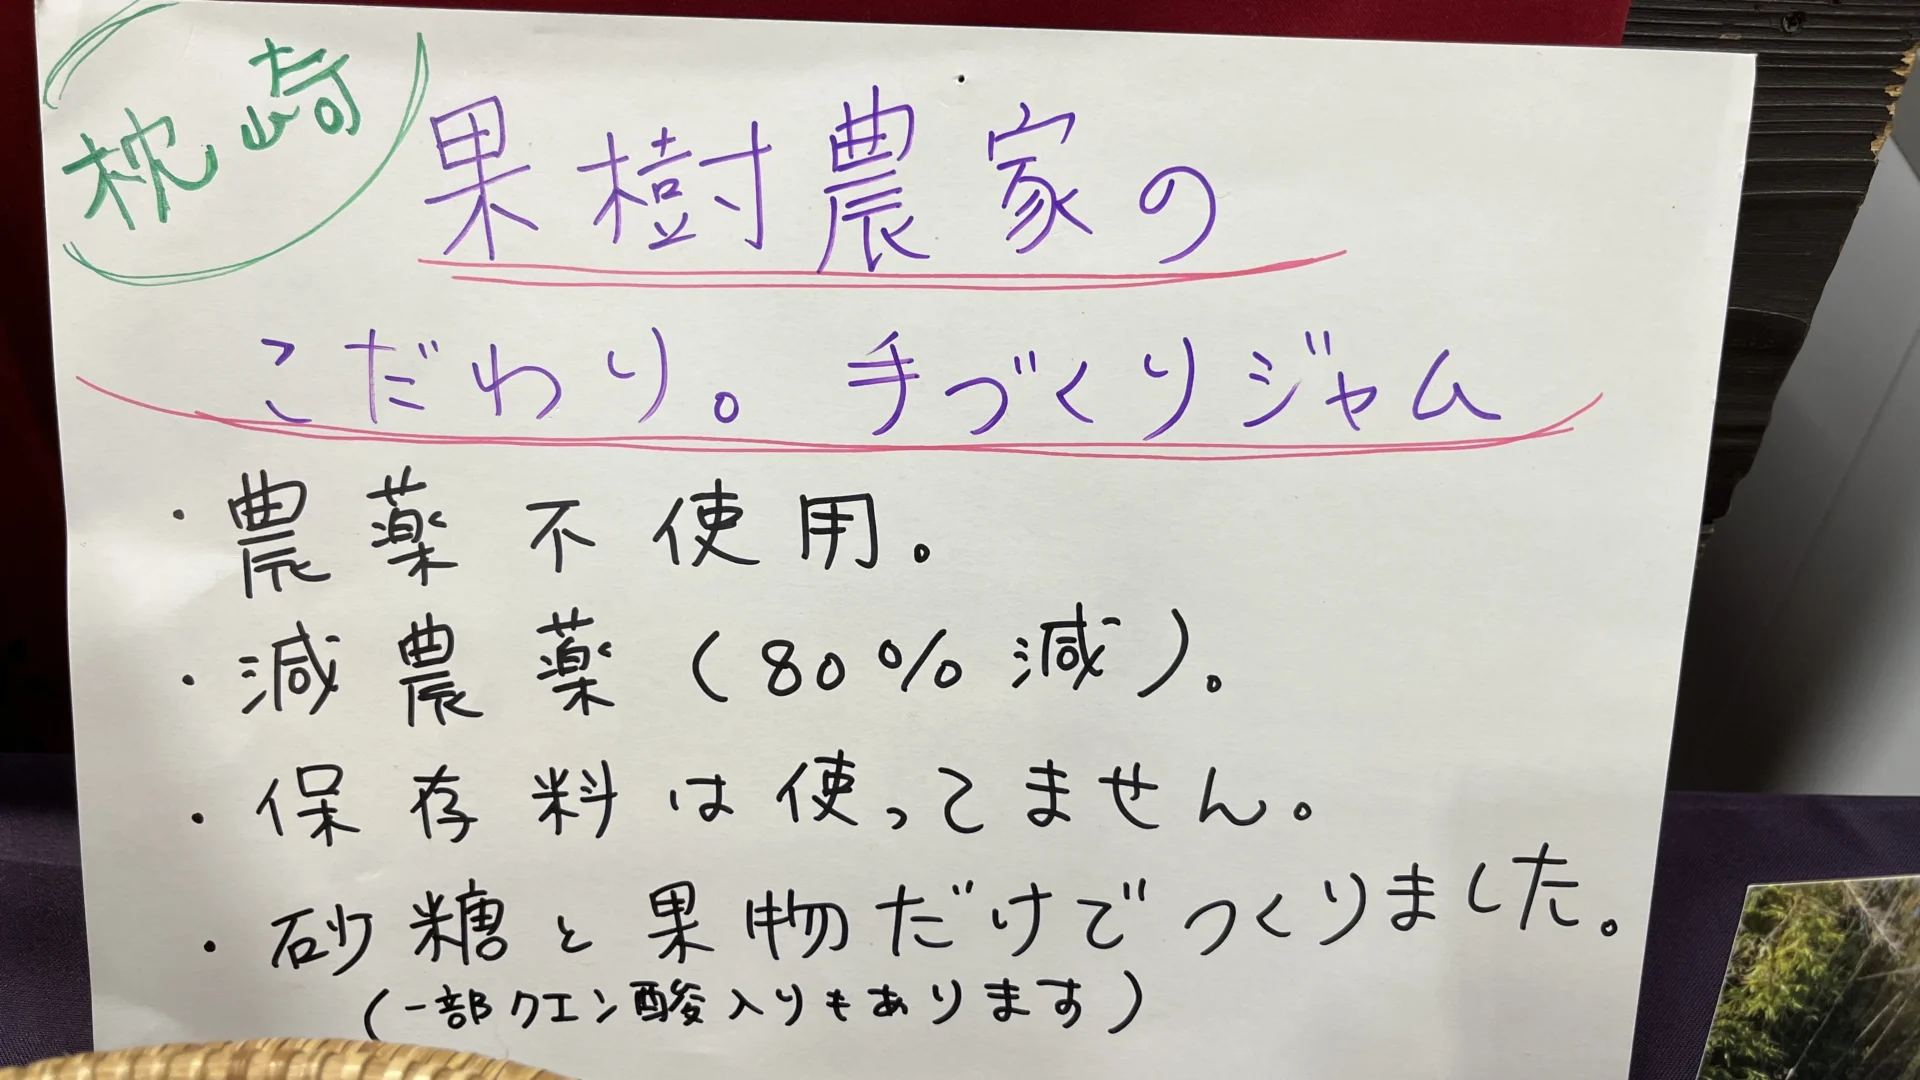 枕崎
果樹農家の
こだわり。手づくりジャム
・農薬不使用。
・減農薬(80%減)。
・保存料は使ってません。
・砂糖と果物だけでつくりました。
(一部クエン酸入りもあります)